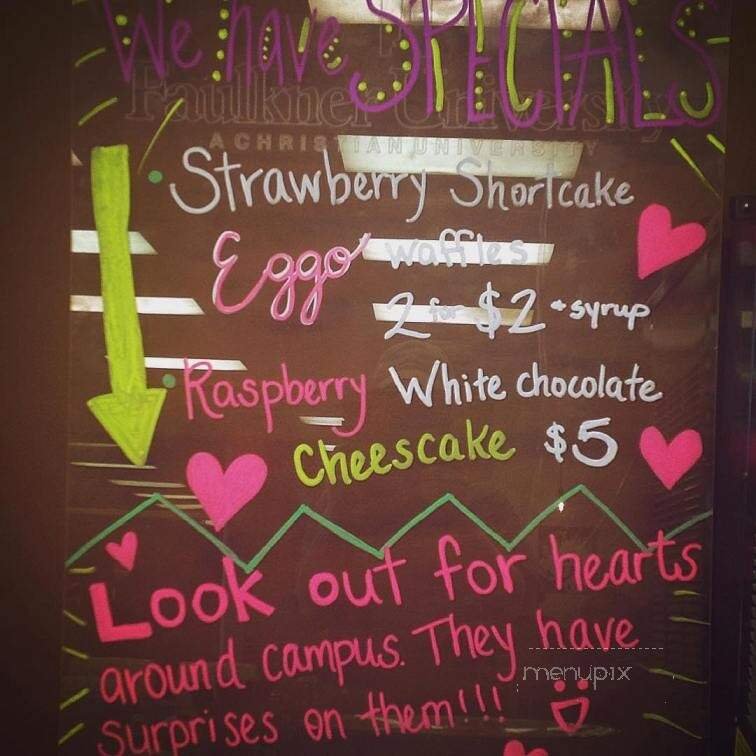 We have SPECIALS
Faulkner University
A CHRISTIAN UNIVERSITY
• Strawberry Shortcake
Eggo waffles
2 for $2 + syrup
• Raspberry White chocolate
Cheescake $5
Look out for hearts
around campus. They have
surprises on them!!!
menupix